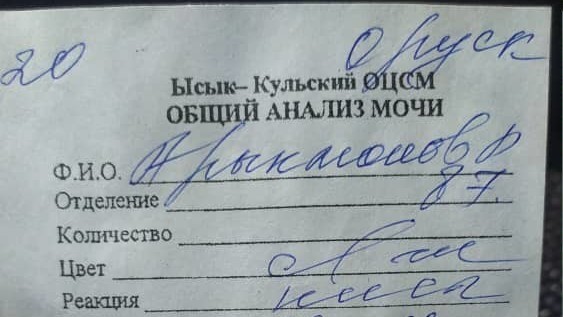 20 Оруск
Ысык– Кульский ОЦСМ
ОБЩИЙ АНАЛИЗ МОЧИ
Ф.И.О.
Отделение 87.
Количество
Цвет
Реакция кисл